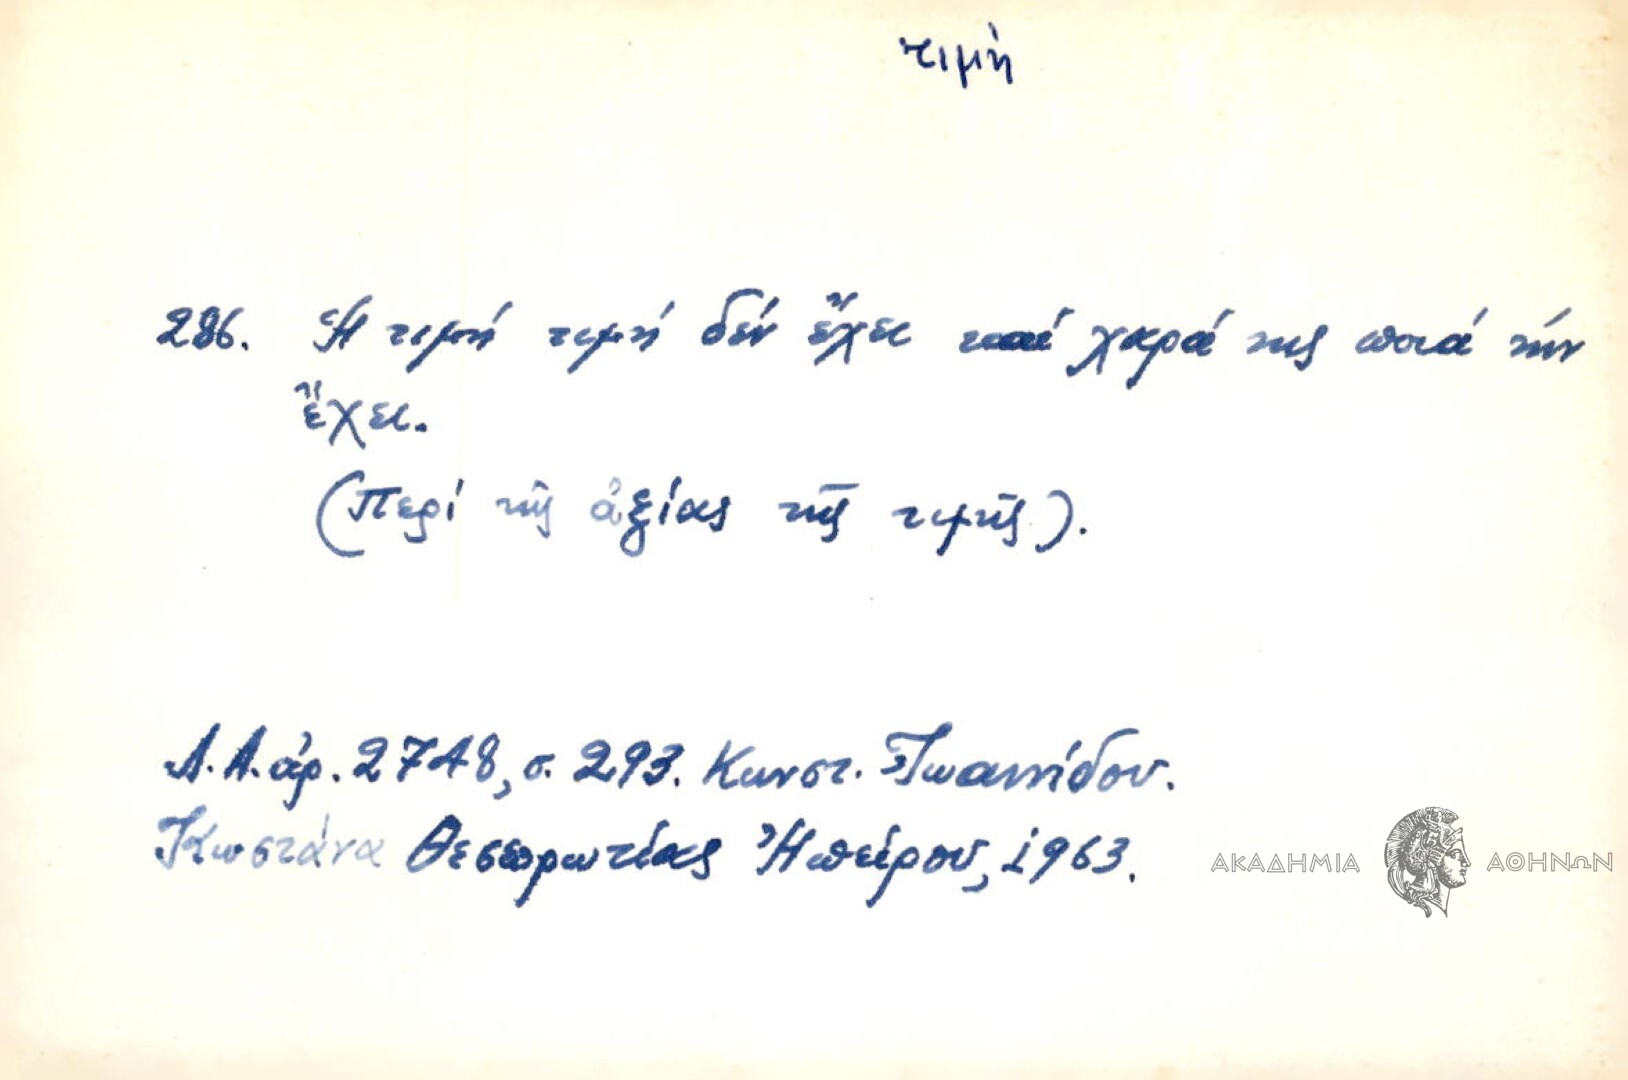 τιμή
286. Ἡ τιμή τιμή δέν ἔχει καί χαρά της ποιά τήν
ἔχει.
(Περί τῆς ἀξίας τῆς τιμῆς).
Λ.Α. ἀρ. 2748, σ. 293. Κωνστ. Ἰωαννίδου.
Κωστάνα Θεσπρωτίας Ἠπείρου, 1963.
ΑΚΑΔΗΜΙΑ ΑΘΗΝΩΝ